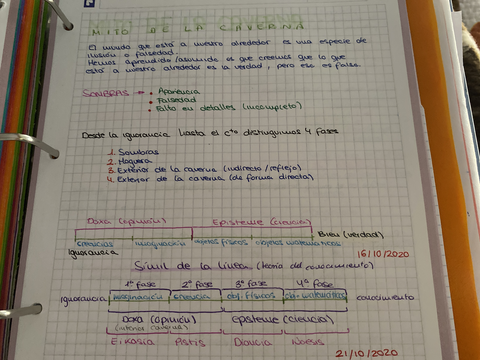 MITO DE LA CAVERNA
El mundo que está a nuestro alrededor es una especie de
ilusión o falsedad.
Hemos aprendido/asumido es que creemos que lo que
está a nuestro alrededor es la verdad, pero eso es falso.
SOMBRAS → • Apariencia
• Falsedad
• Falto en detalles (incompleto)
Desde la ignorancia hasta el cto distinguimos 4 fases
1. Sombras
2. Hoguera
3. Exterior de la caverna (indirecto / reflejo)
4. Exterior de la caverna (de forma directa)
Doxa (opinión) Episteme (ciencia)
Bien (verdad)
creencias imaginación objetos físicos objetos matemáticos
ignorancia
16/10/2020
Símil de la línea (teoría del conocimiento)
1ª fase 2ª fase 3ª fase 4ª fase
ignorancia imaginación creencia obj. físicos obj. matemáticos conocimiento
Doxa (opinión) Episteme (ciencia)
(interior caverna)
Eikasia Pistis Dianoia Noesis
21/10/2020